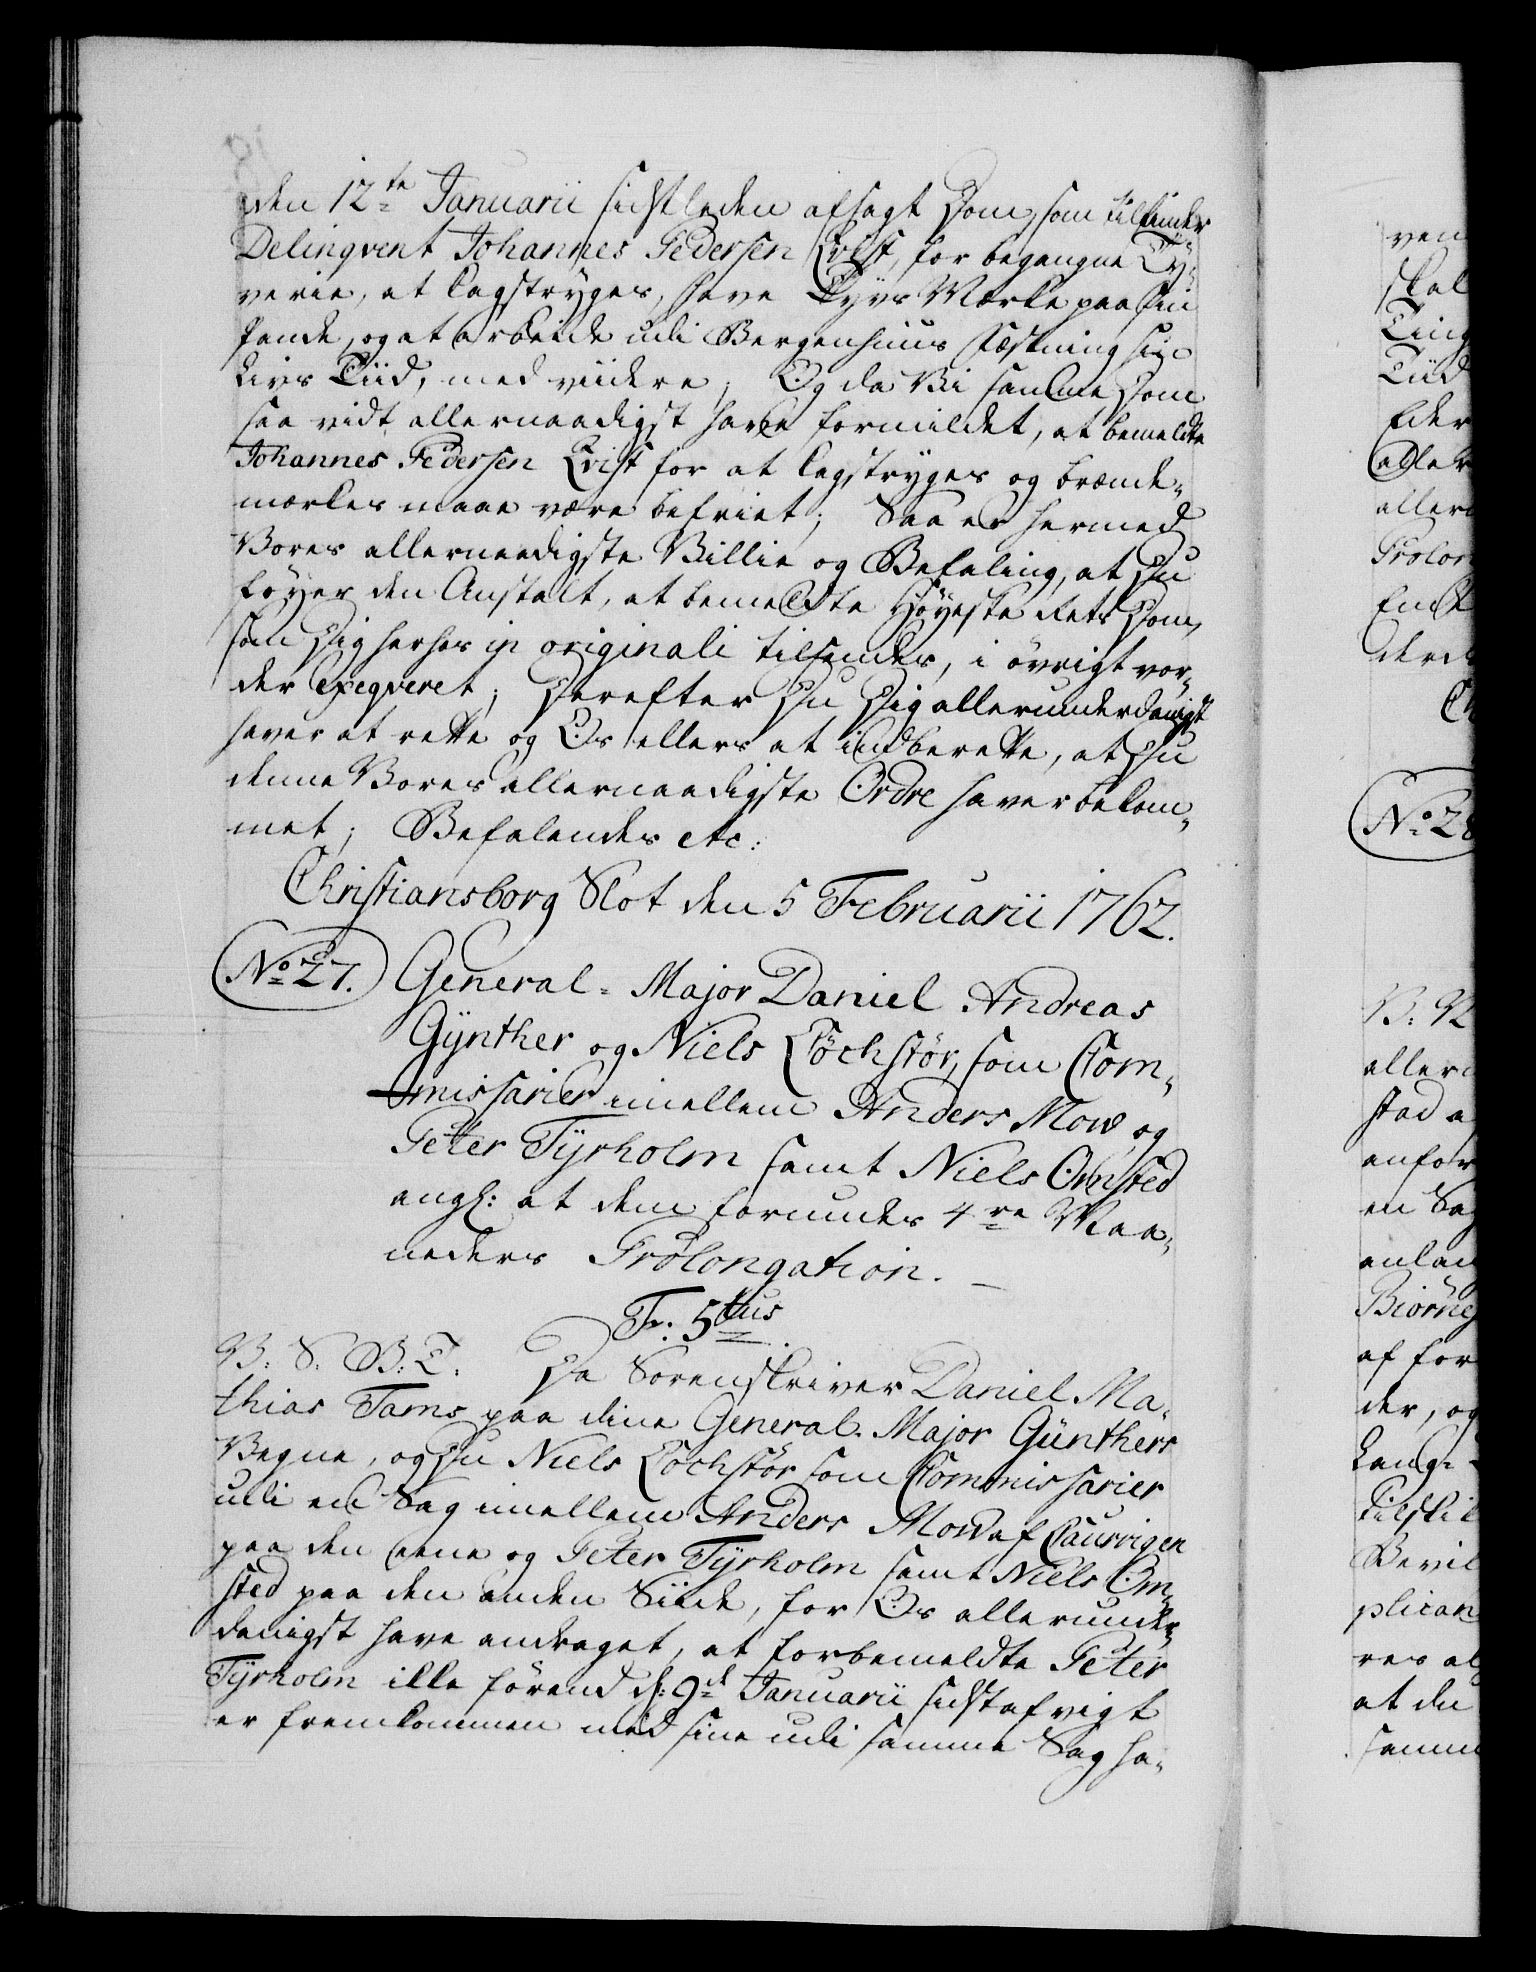 den 12te Januarii sidstleden afsagt Dom, som tilfinder
Delinqvent Johannes Pedersen Qvist, for begangne Ty-
verie, at Kagstryges, have Tyvs Mærke paa sin
Pande, og at arbeide udi Bergenhuus Fæstning sin
Livs Tiid, med viidere; Og da Vi samme Dom
saa vidt allernaadigst have formildet, at bemeldte
Johannes Pedersen Qvist for at Kagstryges og brænde-
mærkes maae være befriet; Saa er hermed
Vores allernaadigste Villie og Befaling, at Du
föyer den Anstalt, at bemeldte Höyeste Rets Dom,
som Dig herhos in originali tilsendes, i övrigt vor-
der exeqveret; Derefter Du Dig allerunderdanigst
haver at rette og Os ellers at indberette, at Du
denne Vores allernaadigste Ordre haver bekom-
met; Befalendes etc:
Christiansborg Slot den 5 Februarii 1762.
No 27. General-Major Daniel Andreas
Gÿnther og Niels Röchstör, som Com-
missarier imellem Anders Mow og
Peter Tÿrholm samt Niels Omsted
angl: at dem forundes 4re Maa-
neders Prolongation.
Fr: 5tus
V: S: G: T: Da Sorenskriver Daniel Ma-
thias Tams paa dine General-Major Günthers
Vegne, og Du Niels Röchstör som Commissarier
udi en Sag imellem Anders Mow af Caurvigen
paa den eene og Peter Tÿrholm samt Niels Om-
sted paa den anden Siide, for Os allerunder-
danigst have andraget, at forbemeldte Peter
Tÿrholm ikke förend d: 9de Januarii sidst afvigt
er fremkommen med sine udi samme Sag ha-
ven
skal
Ting
Tiid
Eder
eller
allern
Prolon
Ende
derde
No 28
allern
stad a
anfor
en Sag
anlan
Biörne
af for
der, og
lang-
tilskil
Bevil
plican
res al
at du
samm